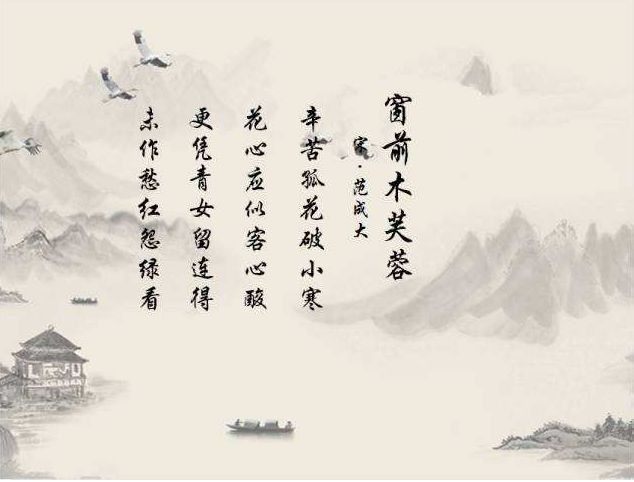 窗前木芙蓉
宋·范成大
辛苦孤花破小寒
花心应似客心酸
更凭青女留连得
未作愁红怨绿看